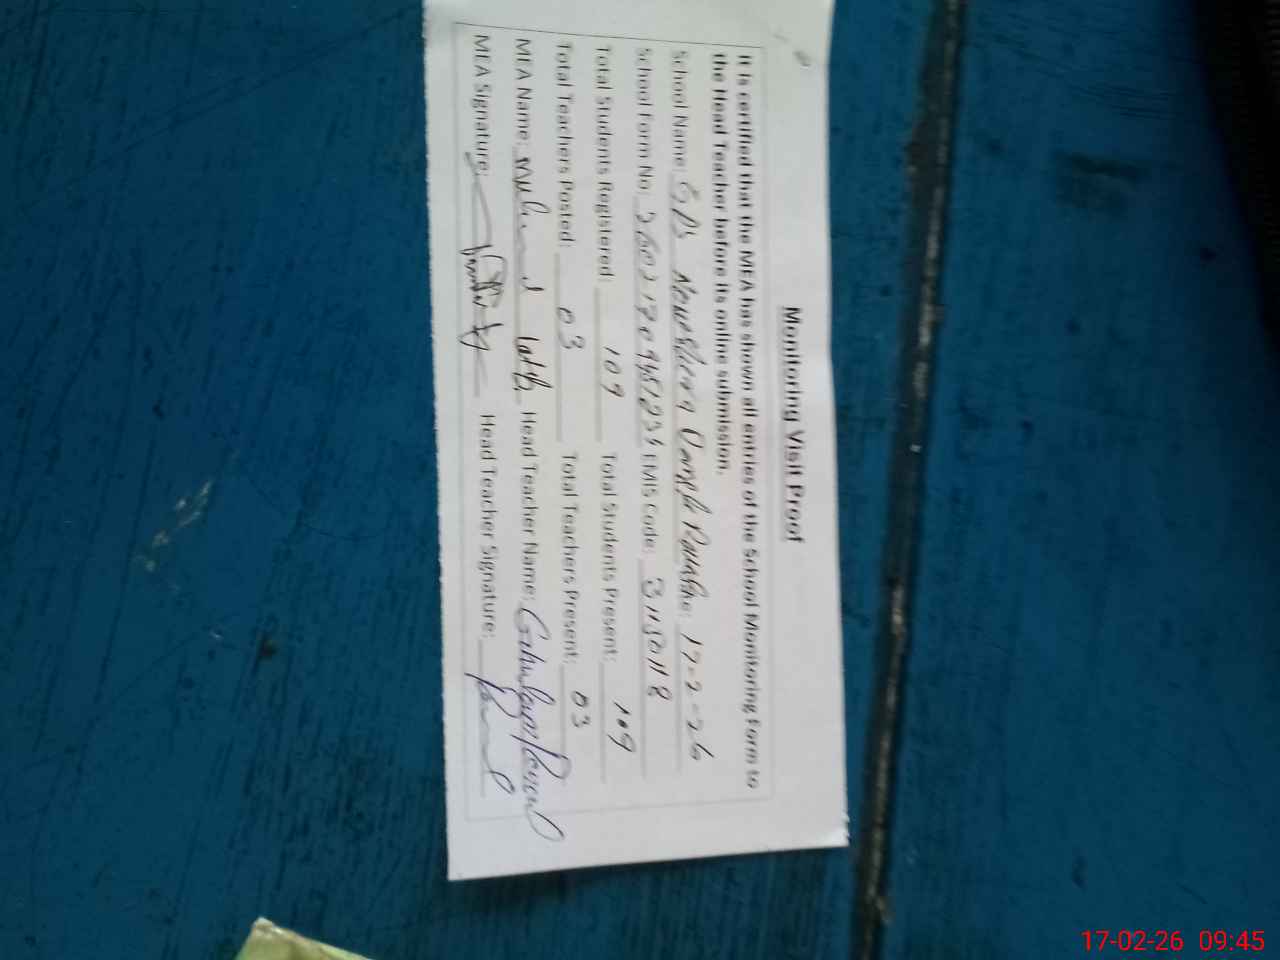 Monitoring Visit Proof
It is certified that the MEA has shown all entries of the School Monitoring Form to
the Head Teacher before its online submission.
School Name: Date: 17-2-26
School Form No: EMIS Code: 31150118
Total Students Registered: 109 Total Students Present: 109
Total Teachers Posted: 03 Total Teachers Present: 03
MEA Name: Head Teacher Name:
MEA Signature: Head Teacher Signature:
17-02-26 09:45